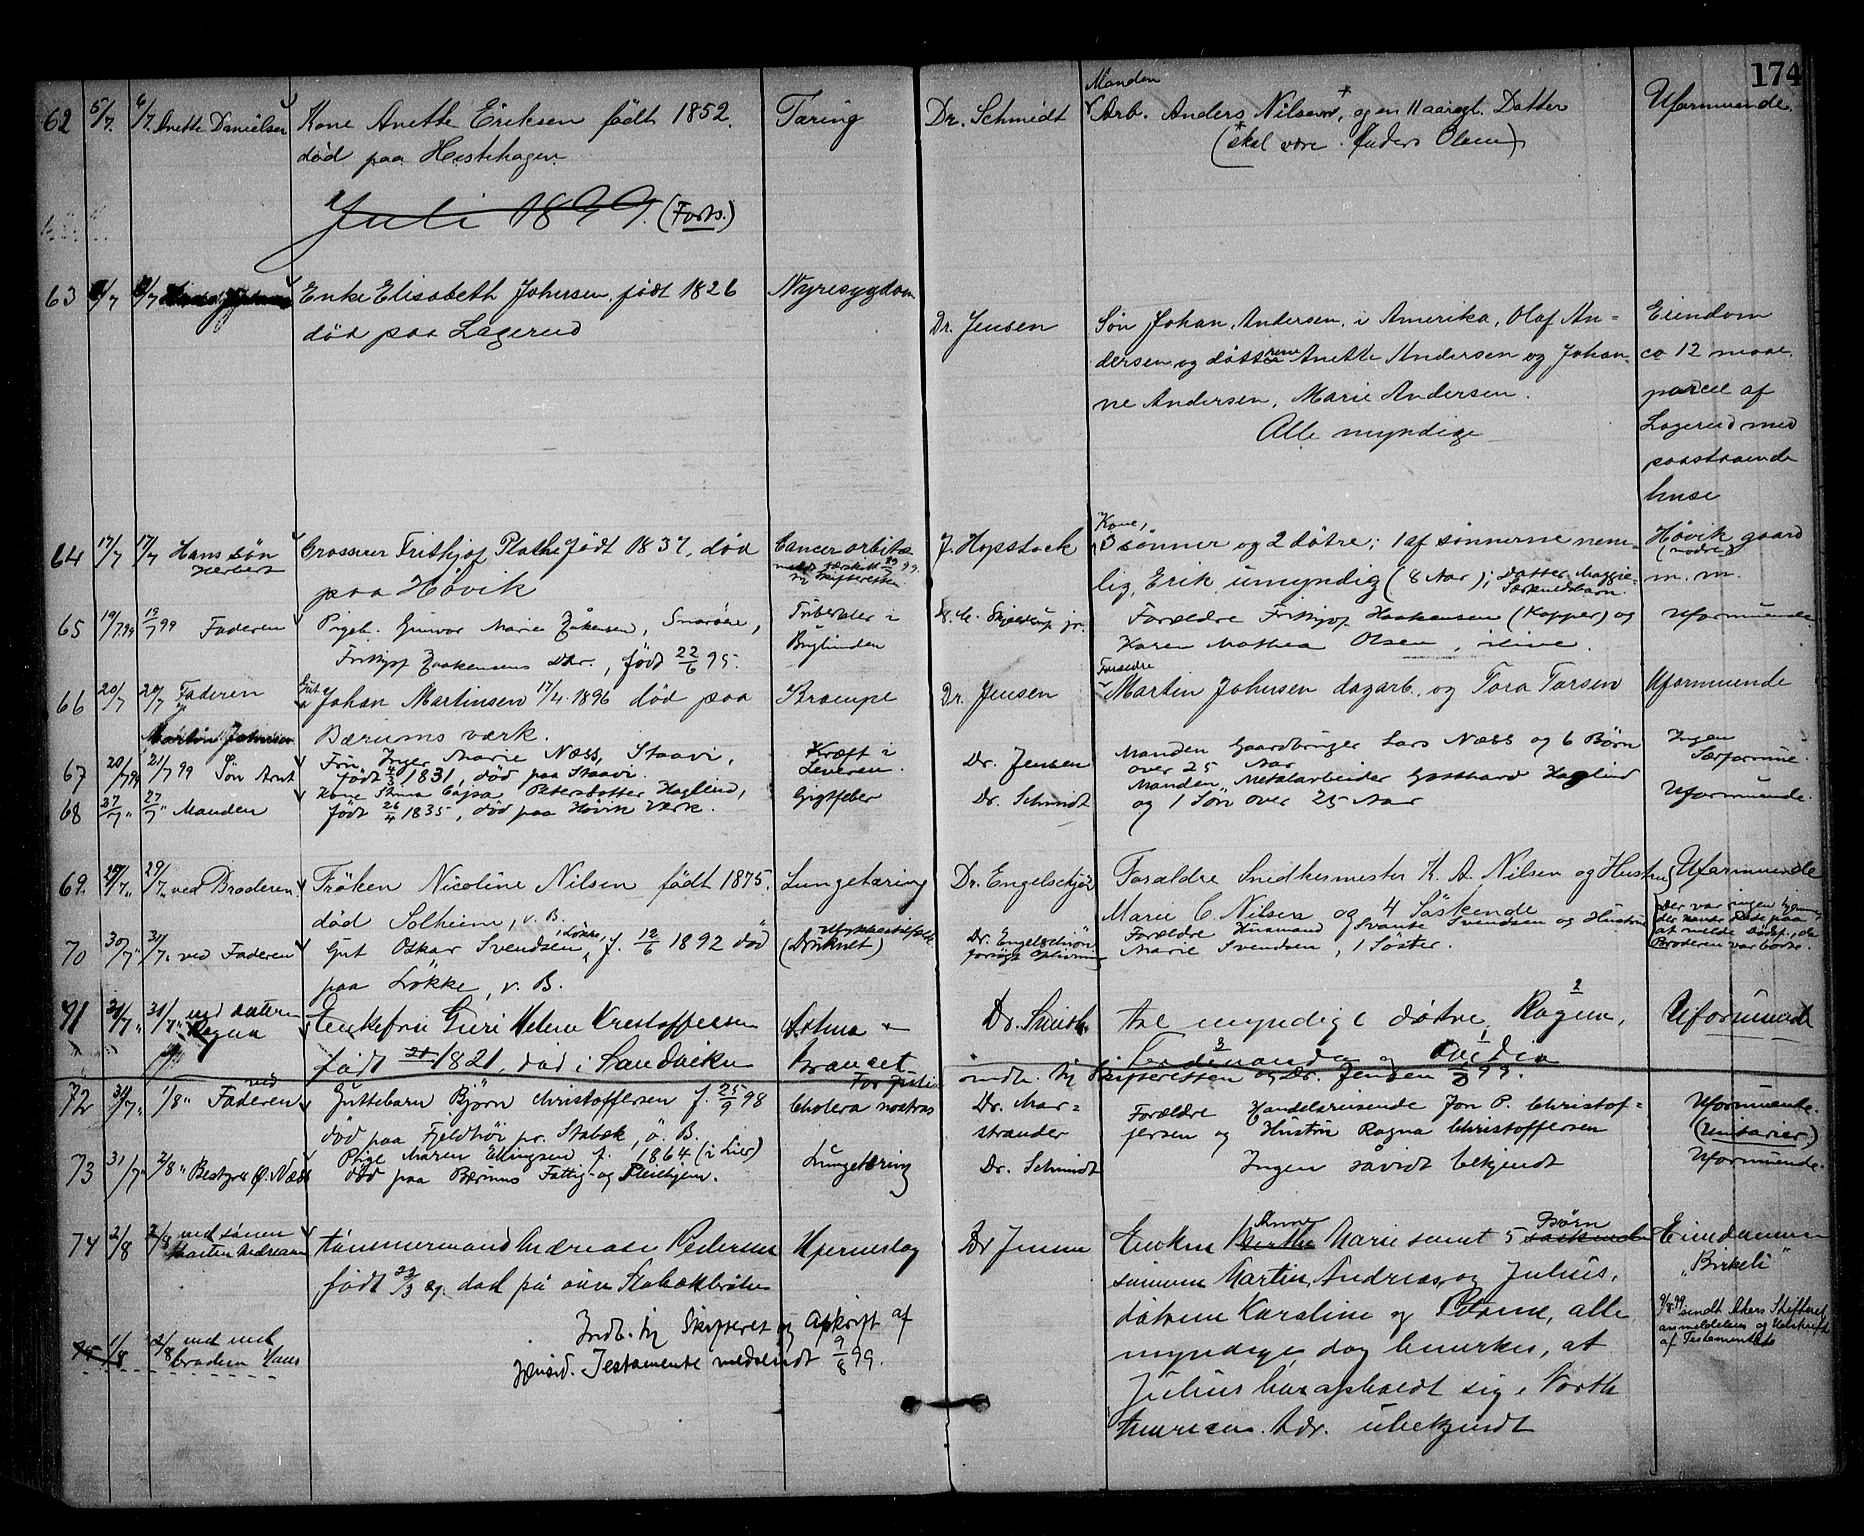 174
62 5/7. 6/7. Anette Danielsen Kone Anette Eriksen født 1852. Tæring Dr. Schmidt Manden Arb. Anders Nilsen, og en 11 aarogl. Datter Uformuende.
død paa Hestehagen (skal være Anders Olsen)
Juli 1899. (Forts.)
63 /7 /7 Enke Elisabeth Johnsen, født 1826 Nyresygdom
død paa Lagerud Dr. Jensen Søn Johan Andersen, i Amerika, Olaf An= Eiendom
dersen og døttrene Anette Andersen og Johan= ca 12 maal
ne Andersen, Marie Andersen. parcel af
Alle myndige Lagerud med
paastaaende
huse
64 17/7 17/7 Hans søn Herbert Grosserer Frithjof Plathe født 1837, død Cancer orbitæ J. Hopstock Kone, 3 sønner og 2 døtre; 1 af sønnerne nem= Høvik gaard (nedre)
paa Høvik lig, Erik umyndig (8 Aar); Datter Maggie Særkuldsbarn. m. m.
65 19/7 99 19/7 99 Faderen Pigeb. Gunvor Marie Haakensen, Snarøen, Tuberkler i Dr. M. Skjelderup jr. Forældre Frithjof Haakensen (Kopper) og Uformuende
Frithjof Haakensens Dtr., født 22/6 95. Karen Mathea Olsen, ilive.
66 20/7 20/7 Faderen Gut Johan Martinsen 17/4 1896 død paa Krampe Dr. Jensen Forældre Martin Johnsen dagarb. og Tora Larsen Uformuende
Martin Johnsen Bærums værk.
67 20/7 99 21/7 99 Søn Arnt Fru Inger Marie Næss, Staavi, Kræft i Leveren. Dr. Jensen Manden Gaardbruger Lars Næss og 6 Børn Ingen Særformue.
født 4/3 1831, død paa Staavi. over 25 Aar
68 27/7 " 27/7 " Manden Kone Stina Cajsa Petersdatter Haglund, Gigtfeber Dr. Schmidt Manden, Metalarbeider Gotthard Haglund Uformuende.
født 26/4 1835, død paa Høvik Værk. og 1 Søn over 25 Aar
69. 29/7 " 29/7 " ved Broderen Frøken Nicoline Nilsen født 1875. Lungetæring Dr. Engelschjøn Forældre Snedkermester K. A. Nilsen og Hustru Uformuende
død Solheim, v. B. Marie C. Nilsen og 4 Søskende
70 30/7 " 31/7 " ved Faderen Gut Oskar Svendsen, Løkke, f. 12/6 1892 død Ulykkestilfælde (Druknet) Dr. Engelschiøn forsøgt Oplivning Forældre Husmand Svante Svendsen og Hustru
paa Løkke, v. B. Marie Svendsen, 1 Søster.
71 31/7 " 31/7 " ved datteren Ragna Enkefru Guri Helene Kristoffersen Astma - Dr. Smith tre myndige døtre, Ragna, Uformuende
født 1821, død i Sandviken Ferdinanda og Ovidia
72 31/7 " 1/8 " ved Faderen Guttebarn Bjørn Christoffersen f. 25/9 98 Cholera nostras Dr. Mar= strander Forældre Handelsreisende Jon P. Christof= Uformuende.
død paa Fjeldhøi pr. Stabæk, ø. B. fersen og Hustru Ragna Christoffersen (Unitarier.)
73 31/7 " 2/8 " Bestyrer Ø. Næss Pige Maren Ellingsen f. 1864 (i Lier) Lungetæring Dr. Schmidt Ingen såvidt bekjendt Uformuende.
død paa Bærums Fattig- og Pleiehjem.
74 2/8 2/8 ved sønnen Martin Andreasen Tømmermand Andreas Pedersen Hjerneslag Dr Jensen Enken Anne Marie samt 5 Børn Eiendommen
født 23/3 29 død på øvre Stabækbråten sønnerne Martin, Andreas og Julius, "Birkeli"
Indb. til Skifteret og Afskrift af døtrene Karoline og Petrine, alle
75 1/8 2/8 ved broderen Hans Testamente medsendt 9/8 99. myndige, dog bemerkes, at
Julius har opholdt sig i North
Amerika. Adr. ubekjendt